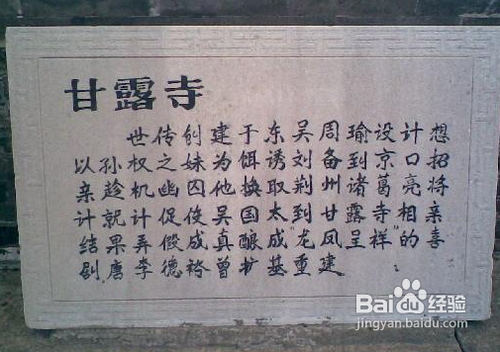 甘露寺
世传创建于东吴周瑜设计想
以孙权之妹为饵诱刘备到京口招
亲趁机幽囚他换取荆州诸葛亮将
计就计促使吴国太到甘露寺相亲
结果弄假成真酿成"龙凤呈祥"的喜
剧唐李德裕曾扩基重建
Baidu经验
jingyan.baidu.com